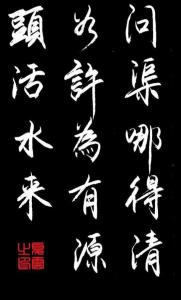 问渠哪得清
如許為有源
頭活水来